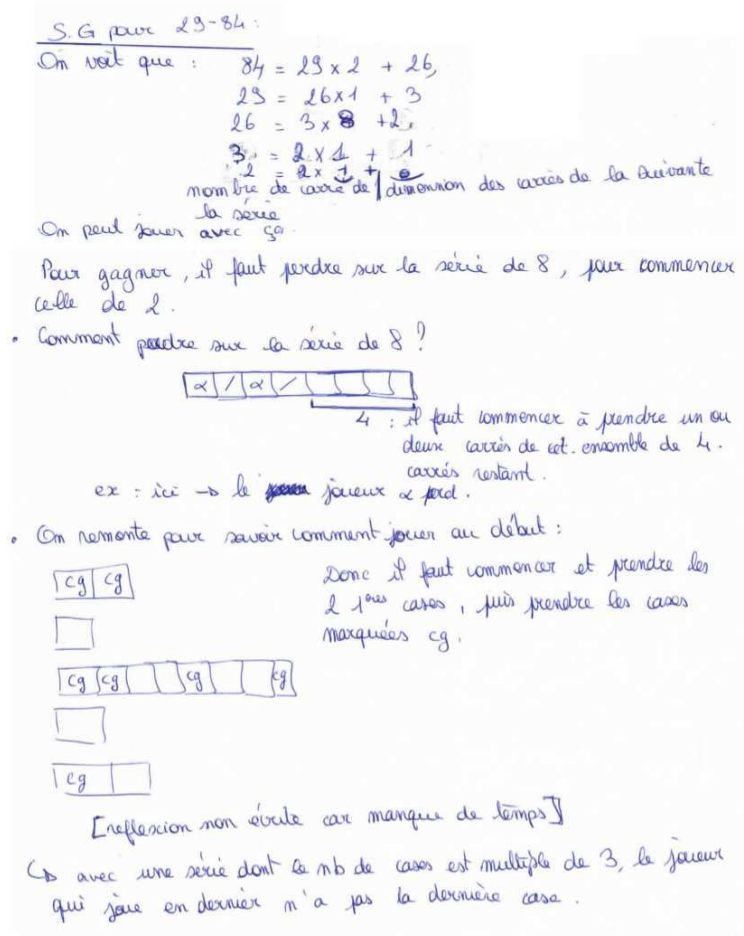 S.G pour 29-84 :
On voit que : 84 = 29 x 2 + 26,
29 = 26x1 + 3
26 = 3 x 8 +2,
3 = 2 x 1 + 1
2 = 2x 1 + 0
nombre de carré de / dimension des carrés de la suivante
la série
On peut jouer avec ça.
Pour gagner, il faut perdre sur la série de 8, pour commencer
celle de 2.
• Comment perdre sur la série de 8 ?
α / α /
4 : il faut commencer à prendre un ou
deux carrés de cet ensemble de 4.
carrés restant.
ex : ici → le joueur α perd.
• On remonte pour savoir comment jouer au début :
cg cg
Donc il faut commencer et prendre les
2 1ères cases, puis prendre les cases
marquées cg.
cg cg cg cg
cg
[reflexion non écrite car manque de temps]
↳ avec une série dont le nb de cases est multiple de 3, le joueur
qui joue en dernier n'a pas la dernière case.